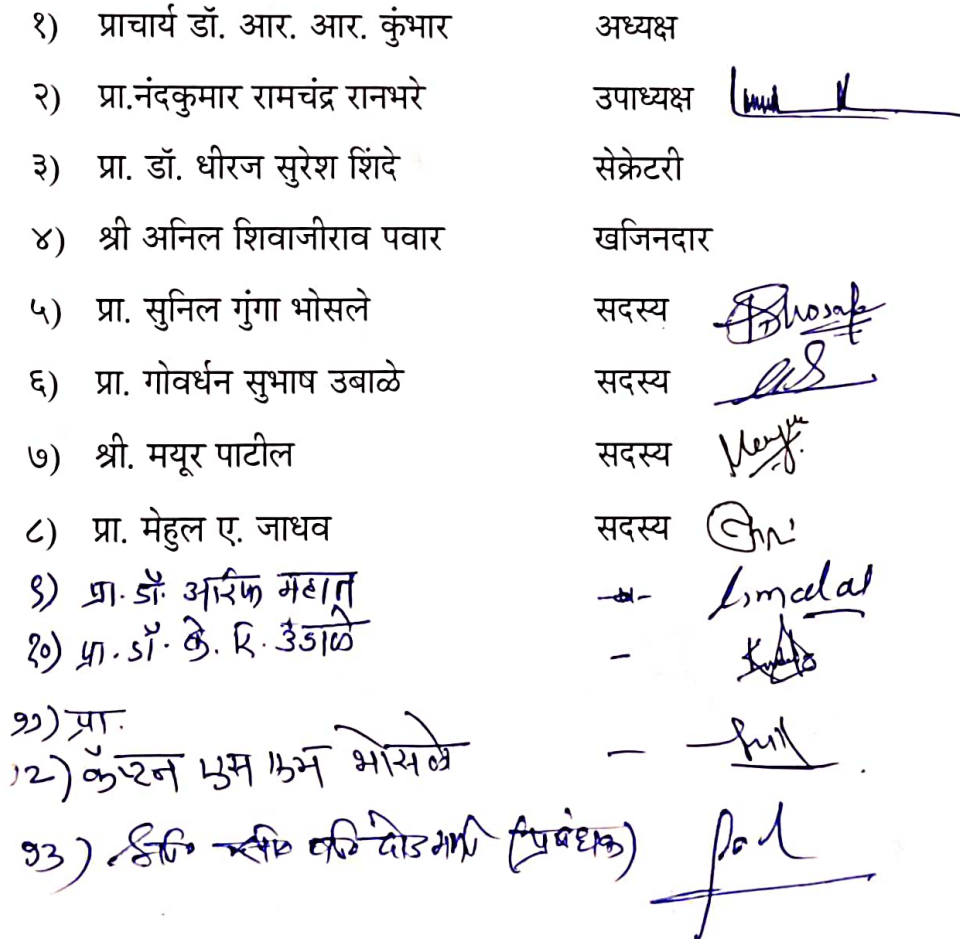 १) प्राचार्य डॉ. आर. आर. कुंभार अध्यक्ष
२) प्रा.नंदकुमार रामचंद्र रानभरे उपाध्यक्ष
३) प्रा. डॉ. धीरज सुरेश शिंदे सेक्रेटरी
४) श्री अनिल शिवाजीराव पवार खजिनदार
५) प्रा. सुनिल गुंगा भोसले सदस्य Bhosale
६) प्रा. गोवर्धन सुभाष उबाळे सदस्य
७) श्री. मयूर पाटील सदस्य
८) प्रा. मेहुल ए. जाधव सदस्य
९) प्रा. डॉ. आरिफ महात -
१०) प्रा. डॉ. के. रि. उंडाळे -
११) प्रा.
१२) कॅप्टन एम एम भोसले -
१३) (प्रबंधक)